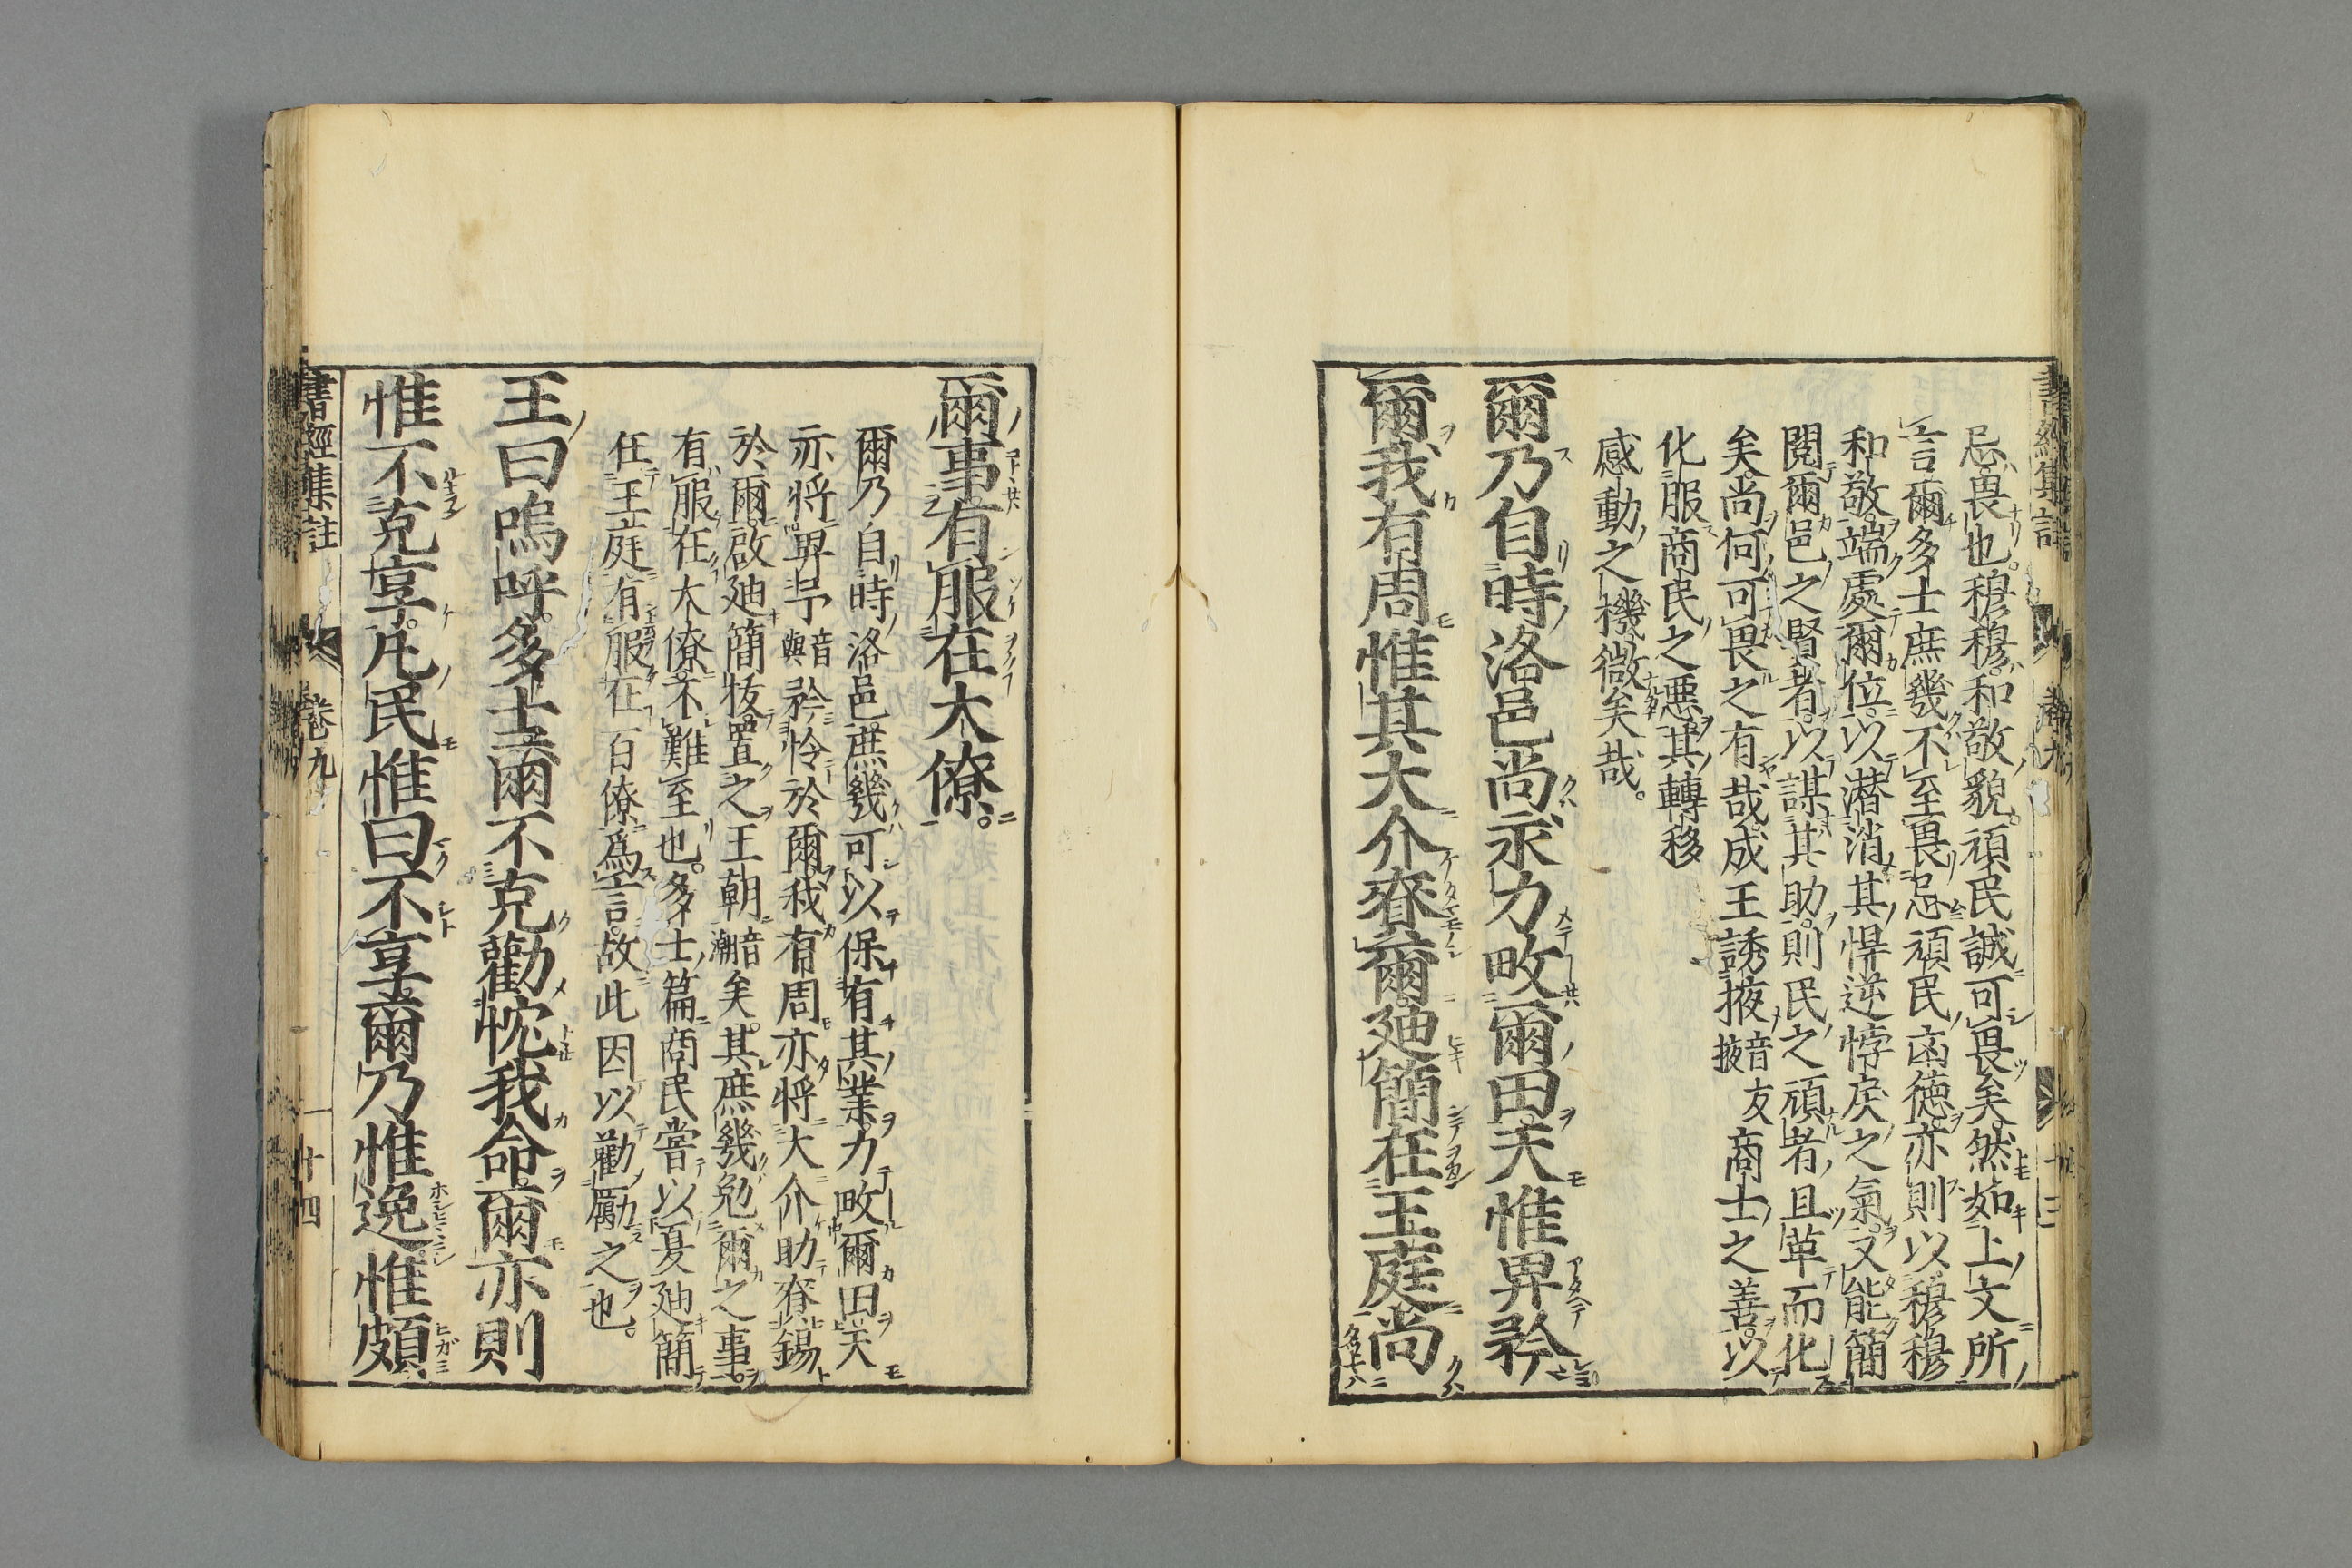 忌畏也。穆穆。和敬貌。頑民誠可畏矣。然如上文所
言。爾多士庶幾不至畏忌頑民凶德。亦則以穆穆
和敬。端處爾位。以潛消其悍逆悖戾之氣。又能簡
閱爾邑之賢者。以謀其助。則民之頑者。且革而化
矣。尚何可畏之有哉。成王誘掖音掖友商士之善。以
化服商民之惡。其轉移
感動之機微矣哉。
爾乃自時洛邑尚永力畋爾田天惟畀矜
爾我有周惟其大介賚爾迪簡在王庭尚
爾事有服在大僚。
爾乃自時洛邑。庶幾可以保有其業。力畋爾田。天
亦將畀予音與矜憐於爾。我有周亦將大介助賚錫
於爾。啟迪簡拔。置之王朝音潮矣。其庶幾勉爾之事。
有服在大僚。不難至也。多士篇商民嘗以夏迪簡
在王庭有服在百僚爲言。故此因以勸勵之也。
王曰嗚呼。多士爾不克勸忱我命。爾亦則
惟不克享。凡民惟曰不享。爾乃惟逸。惟頗
書經集註 卷九 十四